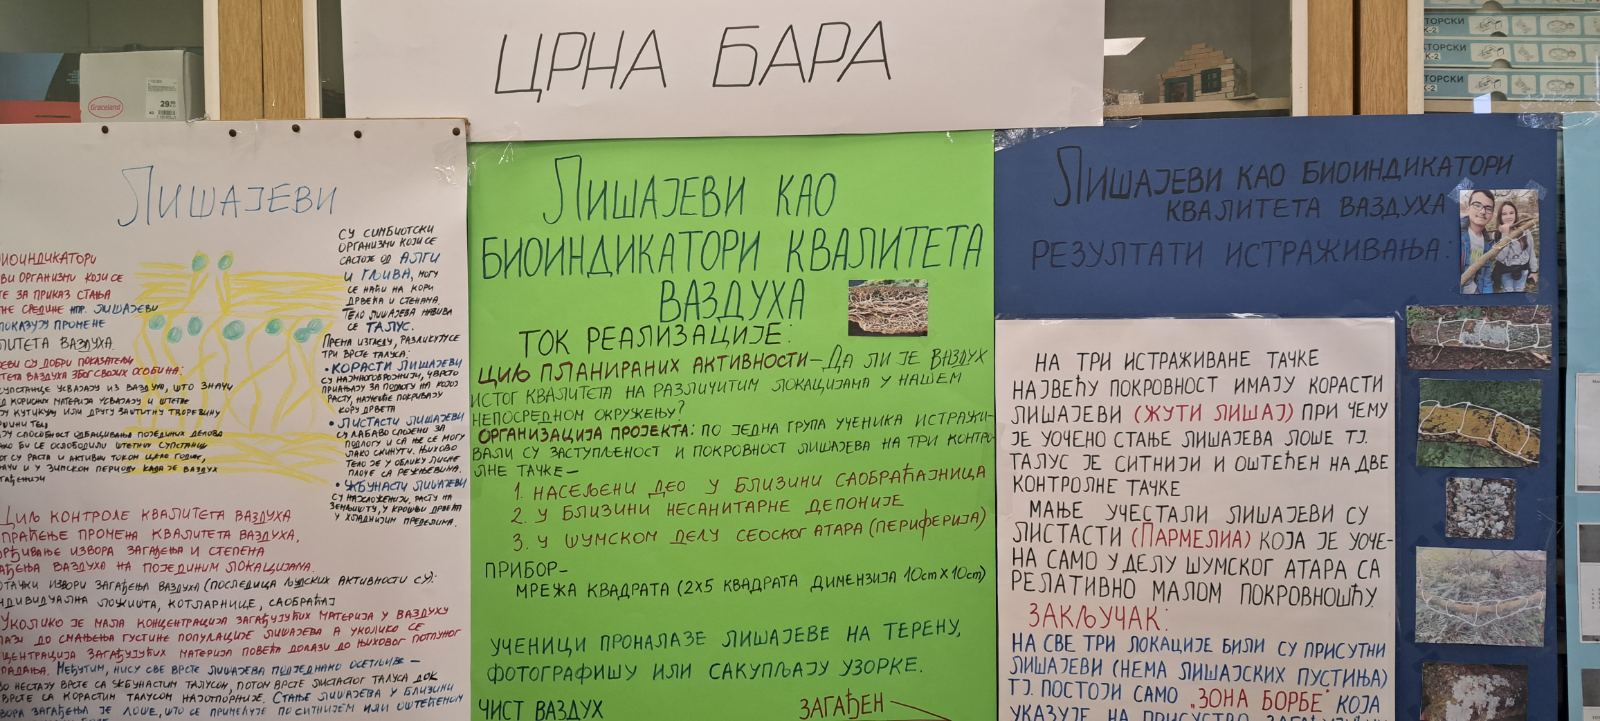 ЦРНА БАРА
Graceland
29.
ТОРСКИ
К-2
АТОРСКИ
К-2
АТОРСКИ
К-2
ЛИШАЈЕВИ
СУ СИМБИОТСКИ
ОРГАНИЗМИ КОЈИ СЕ
САСТОЈЕ ОД АЛГИ
И ГЉИВА, МОГУ
СЕ НАЋИ НА КОРИ
ДРВЕЋА И СТЕНАМА.
ТЕЛО ЛИШАЈЕВА НАЗИВА
СЕ ТАЛУС.
ПРЕМА ИЗГЛЕДУ, РАЗЛИКУЈУ СЕ
ТРИ ВРСТЕ ТАЛУСА:
• КОРАСТИ ЛИШАЈЕВИ
СУ НАЈМНОГОБРОЈНИЈИ, ЧВРСТО
ПРИЈАЊАЈУ ЗА ПОДЛОГУ НА КОЈОЈ
РАСТУ, НАЈЧЕШЋЕ ПОКРИВАЈУ
КОРУ ДРВЕТА
• ЛИСТАСТИ ЛИШАЈЕВИ
СУ ЛАБАВО СЛОЖЕНИ ЗА
ПОДЛОГУ И СА ЊЕ СЕ МОГУ
ЛАКО СКИНУТИ. ЊИХОВО
ТЕЛО ЈЕ У ОБЛИКУ ЛИСНЕ
ПЛОЧЕ СА РЕЖЊЕВИМА.
• ЖБУНАСТИ ЛИШАЈЕВИ
СУ НАЈСЛОЖЕНИЈИ, РАСТУ НА
ЗЕМЉИШТУ, У КРОШЊИ ДРВЕЋА
У ХЛАДНИЈИМ ПРЕДЕЛИМА.
ИОИНДИКАТОРИ
ВИ ОРГАНИЗМИ КОЈИ СЕ
ТЕ ЗА ПРИКАЗ СТАЊА
ТНЕ СРЕДИНЕ НПР. ЛИШАЈЕВИ
ПОКАЗУЈУ ПРОМЕНЕ
ЛИТЕТА ВАЗДУХА.
ЈЕВИ СУ ДОБРИ ПОКАЗАТЕЉИ
ТЕТА ВАЗДУХА ЗБОГ СВОЈИХ ОСОБИНА:
СУПСТАНЦЕ УСВАЈАЈУ ИЗ ВАЗДУХА, ШТО ЗНАЧИ
Д КОРИСНИХ МАТЕРИЈА УСВАЈАЈУ И ШТЕТНЕ
ЈУ КУТИКУЛУ ИЛИ ДРУГУ ЗАШТИТНУ ТВОРЕВИНУ
РШИНИ ТЕЛ
ЈУ СПОСОБНОСТ ОДБАЦИВАЊА ПОЈЕДИНИХ ДЕЛОВА
АКО БИ СЕ ОСЛОБОДИЛИ ШТЕТНИХ СУПСТАНЦИ
ОГ СУ РАСТА И АКТИВНИ ТОКОМ ЦЕЛЕ ГОДИНЕ,
НАЧИ И У ЗИМСКОМ ПЕРИОДУ КАДА ЈЕ ВАЗДУХ
АГАЂЕНИЈИ
ЦИЉ КОНТРОЛЕ КВАЛИТЕТА ВАЗДУХА
ПРАЋЕЊЕ ПРОМЕНА КВАЛИТЕТА ВАЗДУХА,
ОРЂИВАЊЕ ИЗВОРА ЗАГАЂЕЊА И СТЕПЕНА
АЂЕЊА ВАЗДУХА НА ПОЈЕДИНИМ ЛОКАЦИЈАМА.
ОТАЧКИ ИЗВОРИ ЗАГАЂЕЊА ВАЗДУХА (ПОСЛЕДИЦА ЉУДСКИХ АКТИВНОСТИ СУ):
НДИВИДУАЛНА ЛОЖИШТА, КОТЛАРНИЦЕ, САОБРАЋАЈ
УКОЛИКО ЈЕ МАЛА КОНЦЕНТРАЦИЈА ЗАГАЂУЈУЋИХ МАТЕРИЈА У ВАЗДУХУ
ЛАЗИ ДО СМАЊЕЊА ГУСТИНЕ ПОПУЛАЦИЈЕ ЛИШАЈЕВА А УКОЛИКО СЕ
ЦЕНТРАЦИЈА ЗАГАЂУЈУЋИХ МАТЕРИЈА ПОВЕЋА ДОЛАЗИ ДО ЊИХОВОГ ПОТПУНОГ
ПАДАЊА. МЕЂУТИМ, НИСУ СВЕ ВРСТЕ ЛИШАЈЕВА ПОДЈЕДНАКО ОСЕТЉИВЕ —
ВО НЕСТАЈУ ВРСТЕ СА ЖБУНАСТИМ ТАЛУСОМ, ПОТОМ ВРСТЕ ЛИСТАСТОГ ТАЛУСА ДОК
ВРСТЕ СА КОРАСТИМ ТАЛУСОМ НАЈОТПОРНИЈЕ. СТАЊЕ ЛИШАЈЕВА У БЛИЗИНИ
ВОРА ЗАГАЂЕЊА ЈЕ ЛОШЕ, ШТО СЕ ПРИМЕЋУЈЕ ПО СИТНИЈЕМ ИЛИ ОШТЕЋЕНОМ
ЛИШАЈЕВИ КАО
БИОИНДИКАТОРИ КВАЛИТЕТА
ВАЗДУХА
ТОК РЕАЛИЗАЦИЈЕ:
ЦИЉ ПЛАНИРАНИХ АКТИВНОСТИ — ДА ЛИ ЈЕ ВАЗДУХ
ИСТОГ КВАЛИТЕТА НА РАЗЛИЧИТИМ ЛОКАЦИЈАМА У НАШЕМ
НЕПОСРЕДНОМ ОКРУЖЕЊУ?
ОРГАНИЗАЦИЈА ПРОЈЕКТА: ПО ЈЕДНА ГРУПА УЧЕНИКА ИСТРАЖИ-
ВАЛИ СУ ЗАСТУПЉЕНОСТ И ПОКРОВНОСТ ЛИШАЈЕВА НА ТРИ КОНТРО-
ЛНЕ ТАЧКЕ —
1. НАСЕЉЕНИ ДЕО У БЛИЗИНИ САОБРАЋАЈНИЦА
2. У БЛИЗИНИ НЕСАНИТАРНЕ ДЕПОНИЈЕ
3. У ШУМСКОМ ДЕЛУ СЕОСКОГ АТАРА (ПЕРИФЕРИЈА)
ПРИБОР—
МРЕЖА КВАДРАТА (2Х5 КВАДРАТА ДИМЕНЗИЈА 10cm X 10cm)
УЧЕНИЦИ ПРОНАЛАЗЕ ЛИШАЈЕВЕ НА ТЕРЕНУ,
ФОТОГРАФИШУ ИЛИ САКУПЉАЈУ УЗОРКЕ.
ЧИСТ ВАЗДУХ
ЗАГАЂЕН
ЛИШАЈЕВИ КАО БИОИНДИКАТОРИ
КВАЛИТЕТА ВАЗДУХА
РЕЗУЛТАТИ ИСТРАЖИВАЊА:
НА ТРИ ИСТРАЖИВАНЕ ТАЧКЕ
НАЈВЕЋУ ПОКРОВНОСТ ИМАЈУ КОРАСТИ
ЛИШАЈЕВИ (ЖУТИ ЛИШАЈ) ПРИ ЧЕМУ
ЈЕ УОЧЕНО СТАЊЕ ЛИШАЈЕВА ЛОШЕ ТЈ.
ТАЛУС ЈЕ СИТНИЈИ И ОШТЕЋЕН НА ДВЕ
КОНТРОЛНЕ ТАЧКЕ
МАЊЕ УЧЕСТАЛИ ЛИШАЈЕВИ СУ
ЛИСТАСТИ (ПАРМЕЛИА) КОЈА ЈЕ УОЧЕ-
НА САМО У ДЕЛУ ШУМСКОГ АТАРА СА
РЕЛАТИВНО МАЛОМ ПОКРОВНОШЋУ.
ЗАКЉУЧАК:
НА СВЕ ТРИ ЛОКАЦИЈЕ БИЛИ СУ ПРИСУТНИ
ЛИШАЈЕВИ (НЕМА ЛИШАЈСКИХ ПУСТИЊА)
ТЈ. ПОСТОЈИ САМО „ЗОНА БОРБЕ" КОЈА
УКАЗУЈЕ НА ПРИСУСТВО